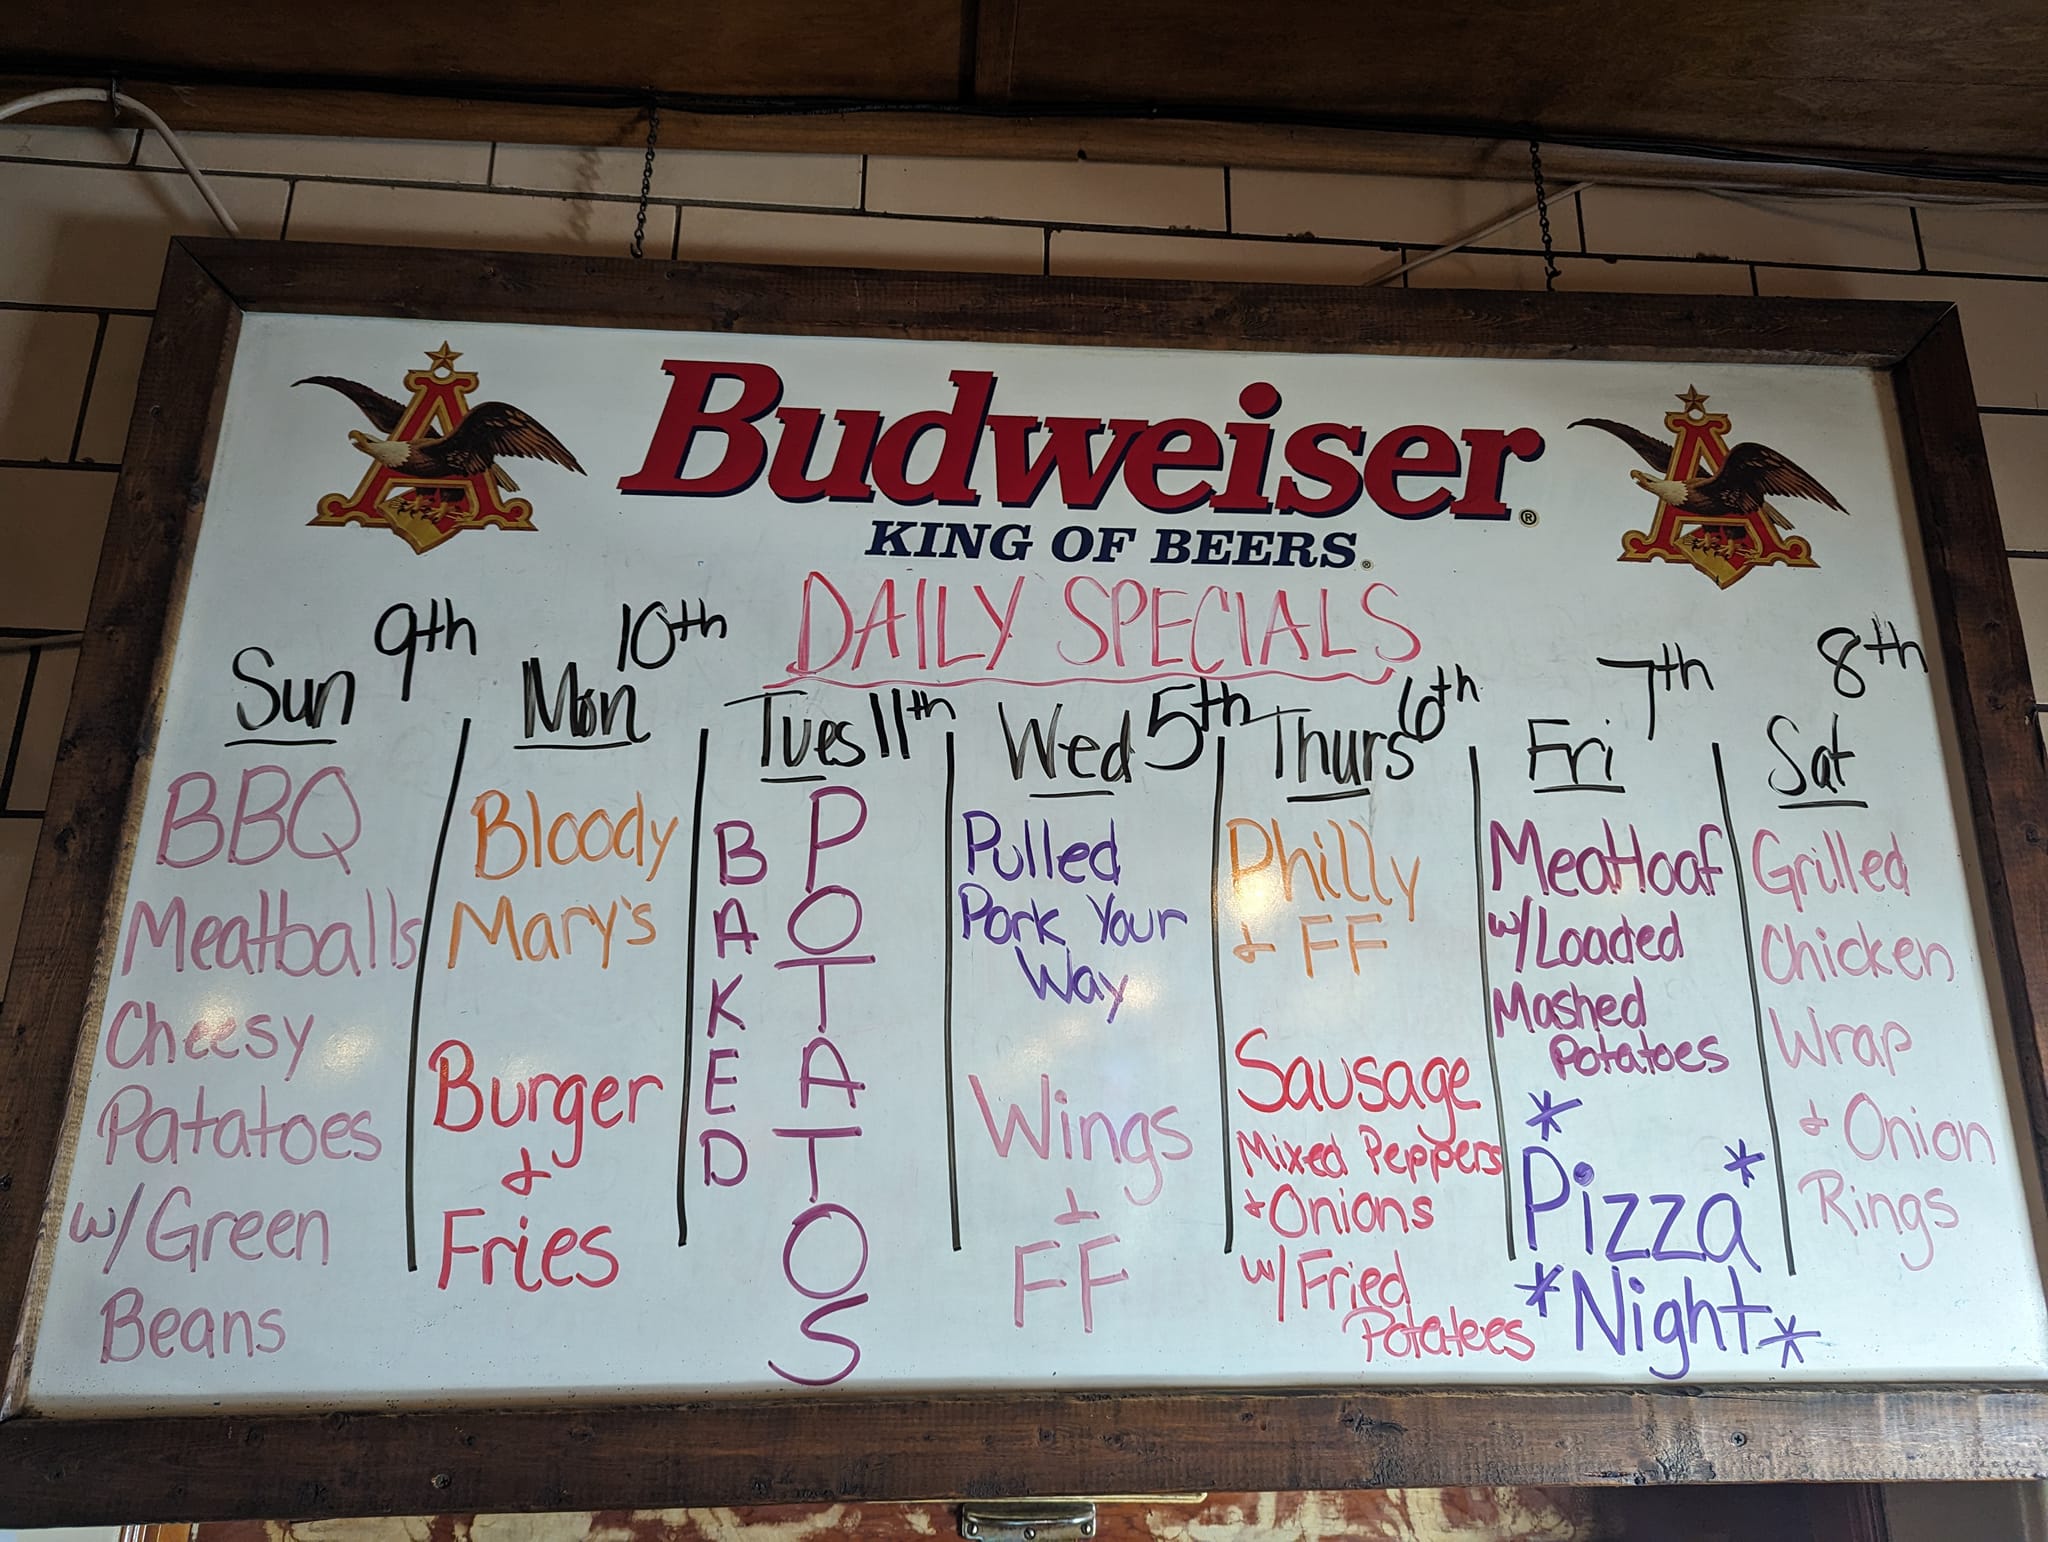 Budweiser®
KING OF BEERS®
DAILY SPECIALS
Sun 9th
BBQ
Meatballs
Cheesy
Patatoes
w/ Green
Beans
Mon 10th
Bloody
Mary's
Burger
&
Fries
Tues 11th
BAKED
POTATOS
Wed 5th
Pulled
Pork Your
Way
Wings
&
FF
Thurs 6th
Philly
& FF
Sausage
Mixed Peppers
& Onions
w/ Fried
Potatoes
Fri 7th
Meatloaf
w/ Loaded
Mashed
Potatoes
*
Pizza *
* Night *
Sat 8th
Grilled
Chicken
Wrap
& Onion
Rings